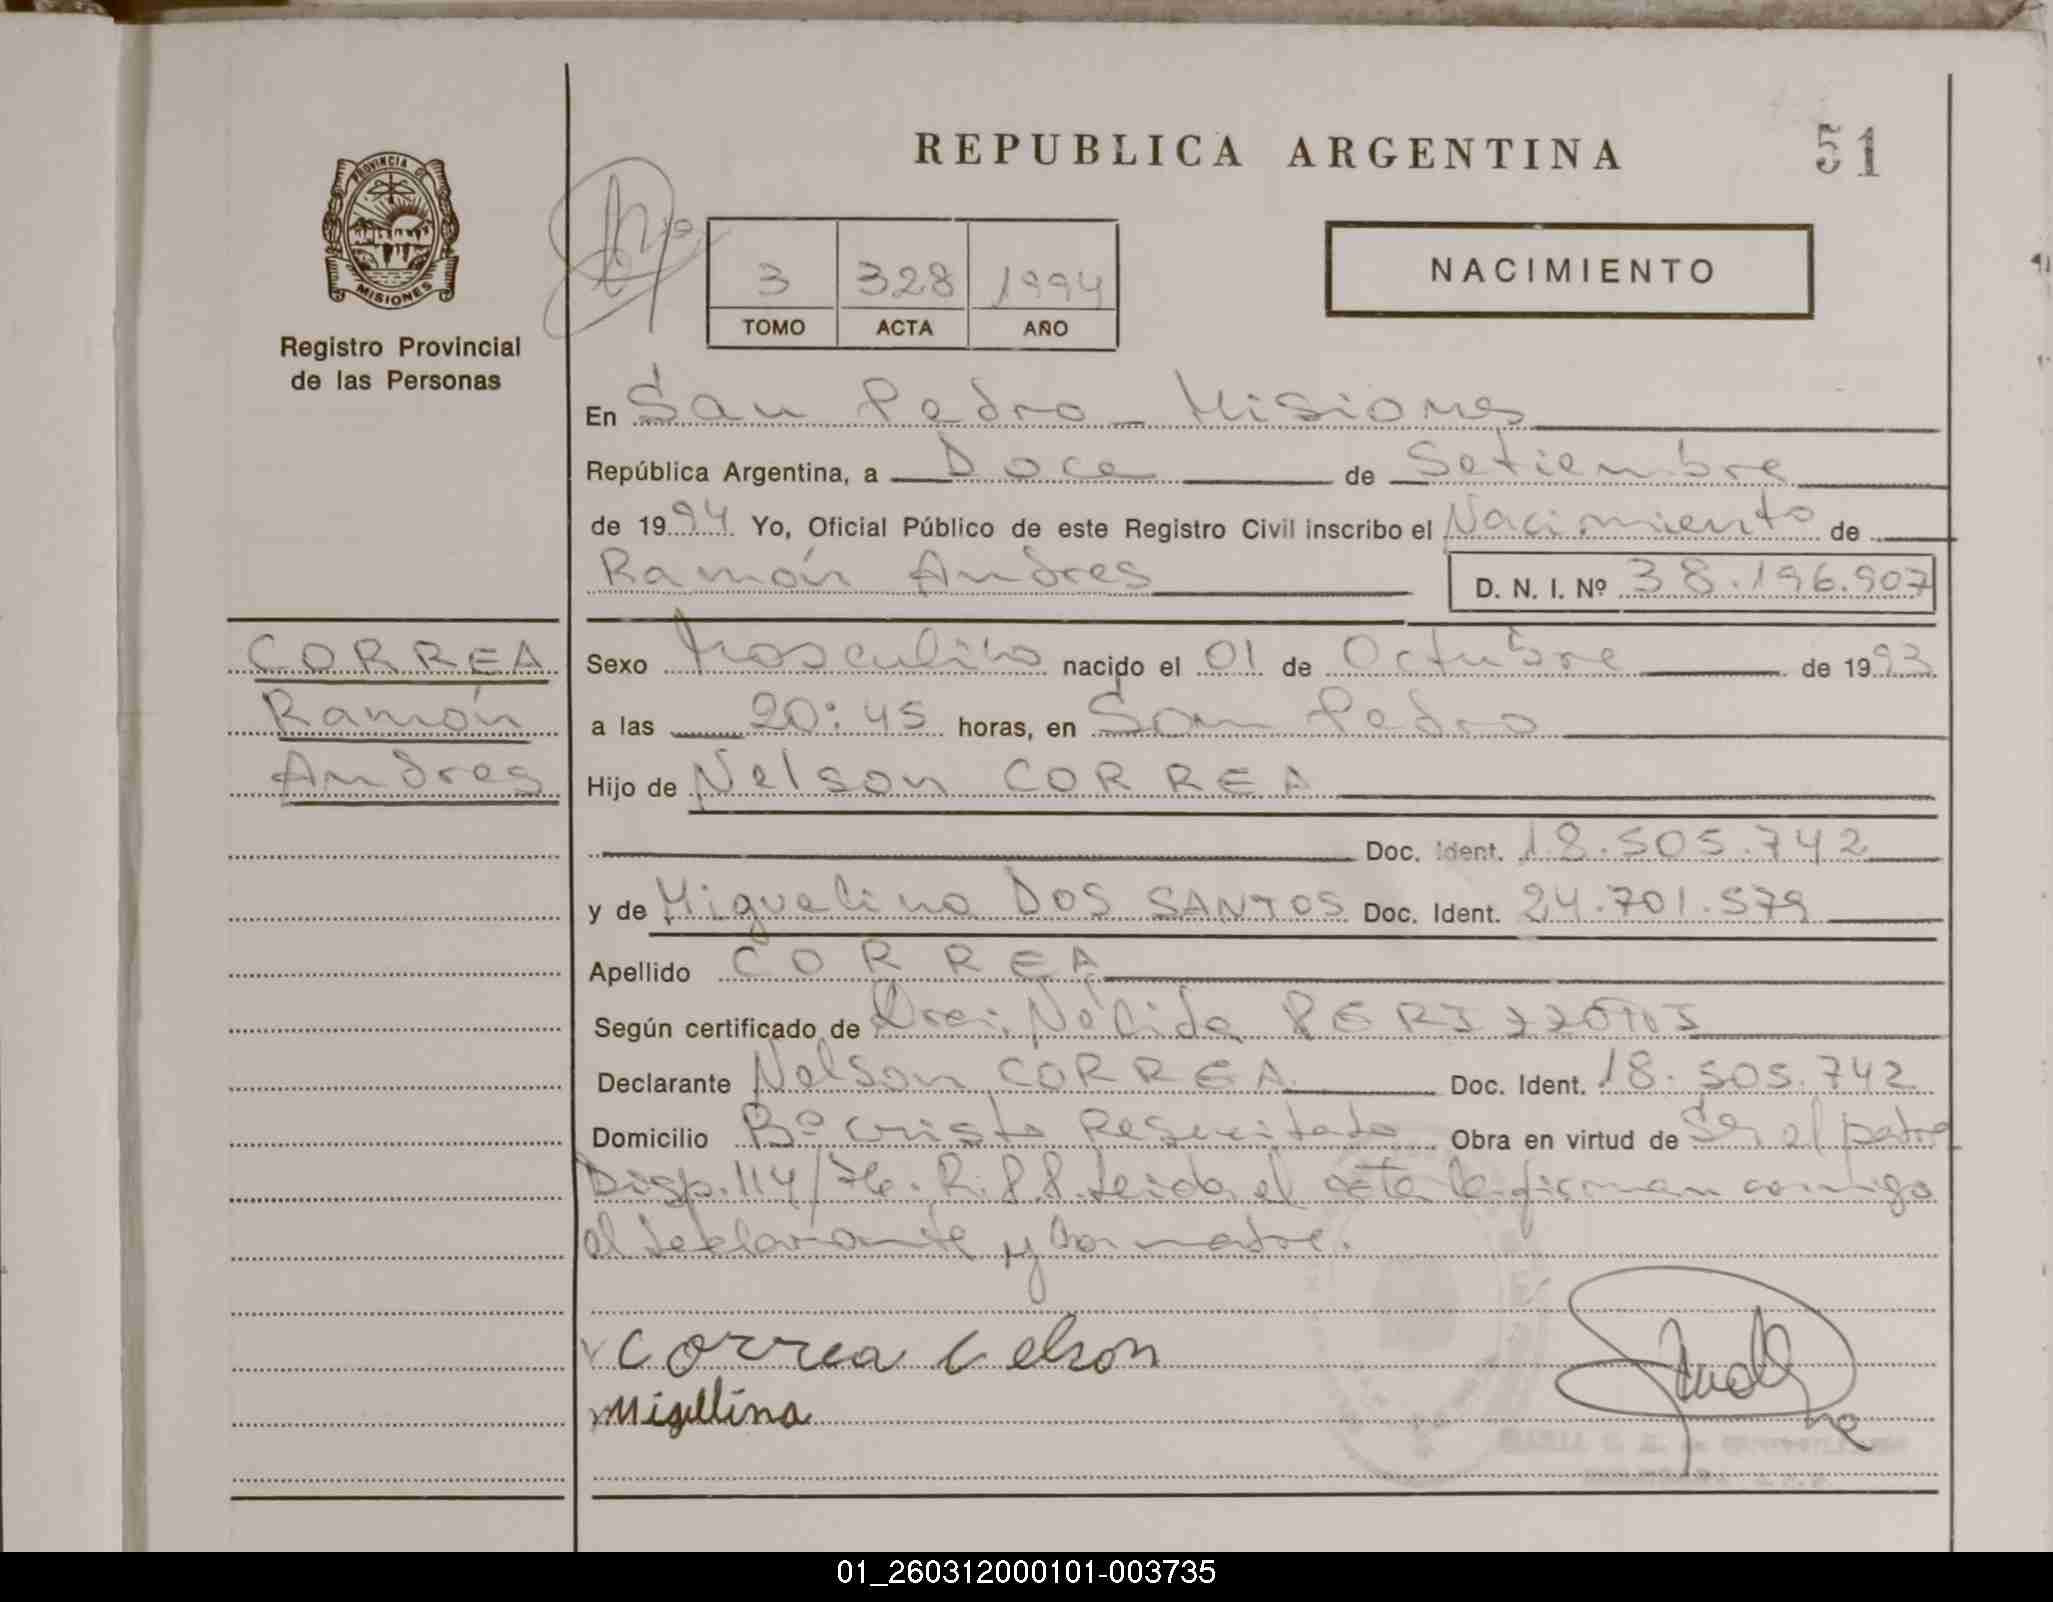 REPUBLICA ARGENTINA
51
PROVINCIA DE
MISIONES
Registro Provincial
de las Personas
3 328 1994
TOMO ACTA AÑO
NACIMIENTO
En San Pedro - Misiones
República Argentina, a Doce de Setiembre
de 1994 Yo, Oficial Público de este Registro Civil inscribo el Nacimiento de
Ramón Andres D. N. I. Nº 38.196.907
CORREA
Ramón
Andres
Sexo Masculino nacido el 01 de Octubre de 1993
a las 20:45 horas, en San Pedro
Hijo de Nelson CORREA
Doc. Ident. 18.505.742
y de Miguelina DOS SANTOS Doc. Ident. 24.701.579
Apellido CORREA
Según certificado de Nélida
Declarante Nelson CORREA Doc. Ident. 18.505.742
Domicilio Bº Cristo Resucitado Obra en virtud de Ser el padre
Disp. 114/76. R.P.P. Leida el acta la firman conmigo
el declarante y la madre.
Correa Celson
Migellina
01_260312000101-003735